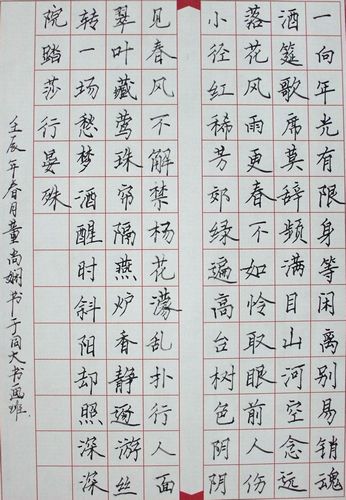 一向年光有限身等闲离别易销魂
酒筵歌席莫辞频满目山河空念远
落花风雨更春不如怜取眼前人伤
小径红稀芳郊绿遍高台树色阴阴
见春风不解禁杨花濛乱扑行人面
翠叶藏莺珠帘隔燕炉香静逐游丝
转一场愁梦酒醒时斜阳却照深深
院踏莎行晏殊
壬辰年春月董尚娴书于同大书画班.